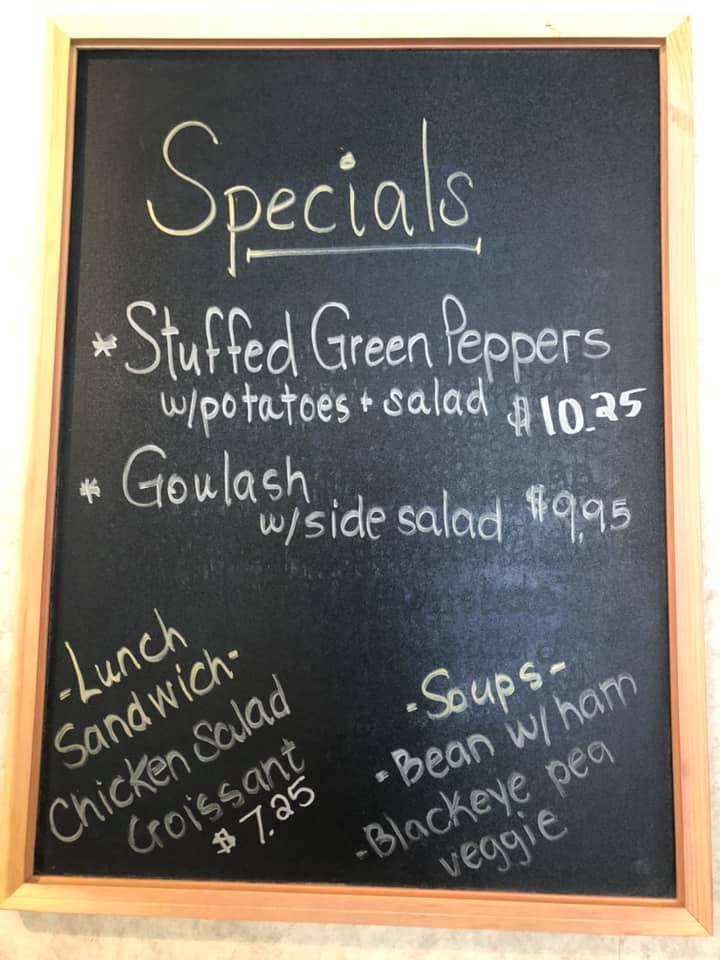 Specials
* Stuffed Green Peppers
w/potatoes + salad $10.25
* Goulash
w/side salad $9.95
-Lunch
Sandwich-
Chicken Salad
Croissant
$7.25
-Soups-
- Bean w/ham
- Blackeye pea
veggie